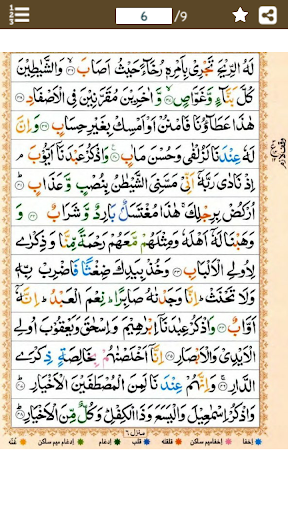 6 /9
لَهُ الرِّيْحَ تَجْرِيْ بِاَمْرِهٖ رُخَآءً حَيْثُ اَصَابَ ۙ﴿۳۶﴾ وَالشَّيٰطِيْنَ
كُلَّ بَنَّآءٍ وَّغَوَّاصٍ ۙ﴿۳۷﴾ وَّاٰخَرِيْنَ مُقَرَّنِيْنَ فِي الْاَصْفَادِ ﴿۳۸﴾
هٰذَا عَطَآؤُنَا فَامْنُنْ اَوْ اَمْسِكْ بِغَيْرِ حِسَابٍ ﴿۳۹﴾ وَاِنَّ
لَهٗ عِنْدَنَا لَزُلْفٰى وَحُسْنَ مَاٰبٍ ﴿۴۰﴾ وَاذْكُرْ عَبْدَنَآ اَيُّوْبَ ۘ
اِذْ نَادٰى رَبَّهٗٓ اَنِّيْ مَسَّنِيَ الشَّيْطٰنُ بِنُصْبٍ وَّعَذَابٍ ﴿۴۱﴾
اُرْكُضْ بِرِجْلِكَ ۚ هٰذَا مُغْتَسَلٌۢ بَارِدٌ وَّشَرَابٌ ﴿۴۲﴾
وَوَهَبْنَا لَهٗٓ اَهْلَهٗ وَمِثْلَهُمْ مَّعَهُمْ رَحْمَةً مِّنَّا وَذِكْرٰى
لِاُولِي الْاَلْبَابِ ﴿۴۳﴾ وَخُذْ بِيَدِكَ ضِغْثًا فَاضْرِبْ بِّهٖ
وَلَا تَحْنَثْ ؕ اِنَّا وَجَدْنٰهُ صَابِرًا ؕ نِعْمَ الْعَبْدُ ؕ اِنَّهٗٓ
اَوَّابٌ ﴿۴۴﴾ وَاذْكُرْ عِبٰدَنَآ اِبْرٰهِيْمَ وَاِسْحٰقَ وَيَعْقُوْبَ اُولِي
الْاَيْدِيْ وَالْاَبْصَارِ ﴿۴۵﴾ اِنَّآ اَخْلَصْنٰهُمْ بِخَالِصَةٍ ذِكْرَى
الدَّارِ ﴿۴۶﴾ وَاِنَّهُمْ عِنْدَنَا لَمِنَ الْمُصْطَفَيْنَ الْاَخْيَارِ ﴿۴۷﴾
وَاذْكُرْ اِسْمٰعِيْلَ وَالْيَسَعَ وَذَا الْكِفْلِ ؕ وَكُلٌّ مِّنَ الْاَخْيَارِ ﴿۴۸﴾
منزل ٦
اخفا اخفامیم ساکن قلقله قلب ادغام ادغام میم ساکن غُنّه